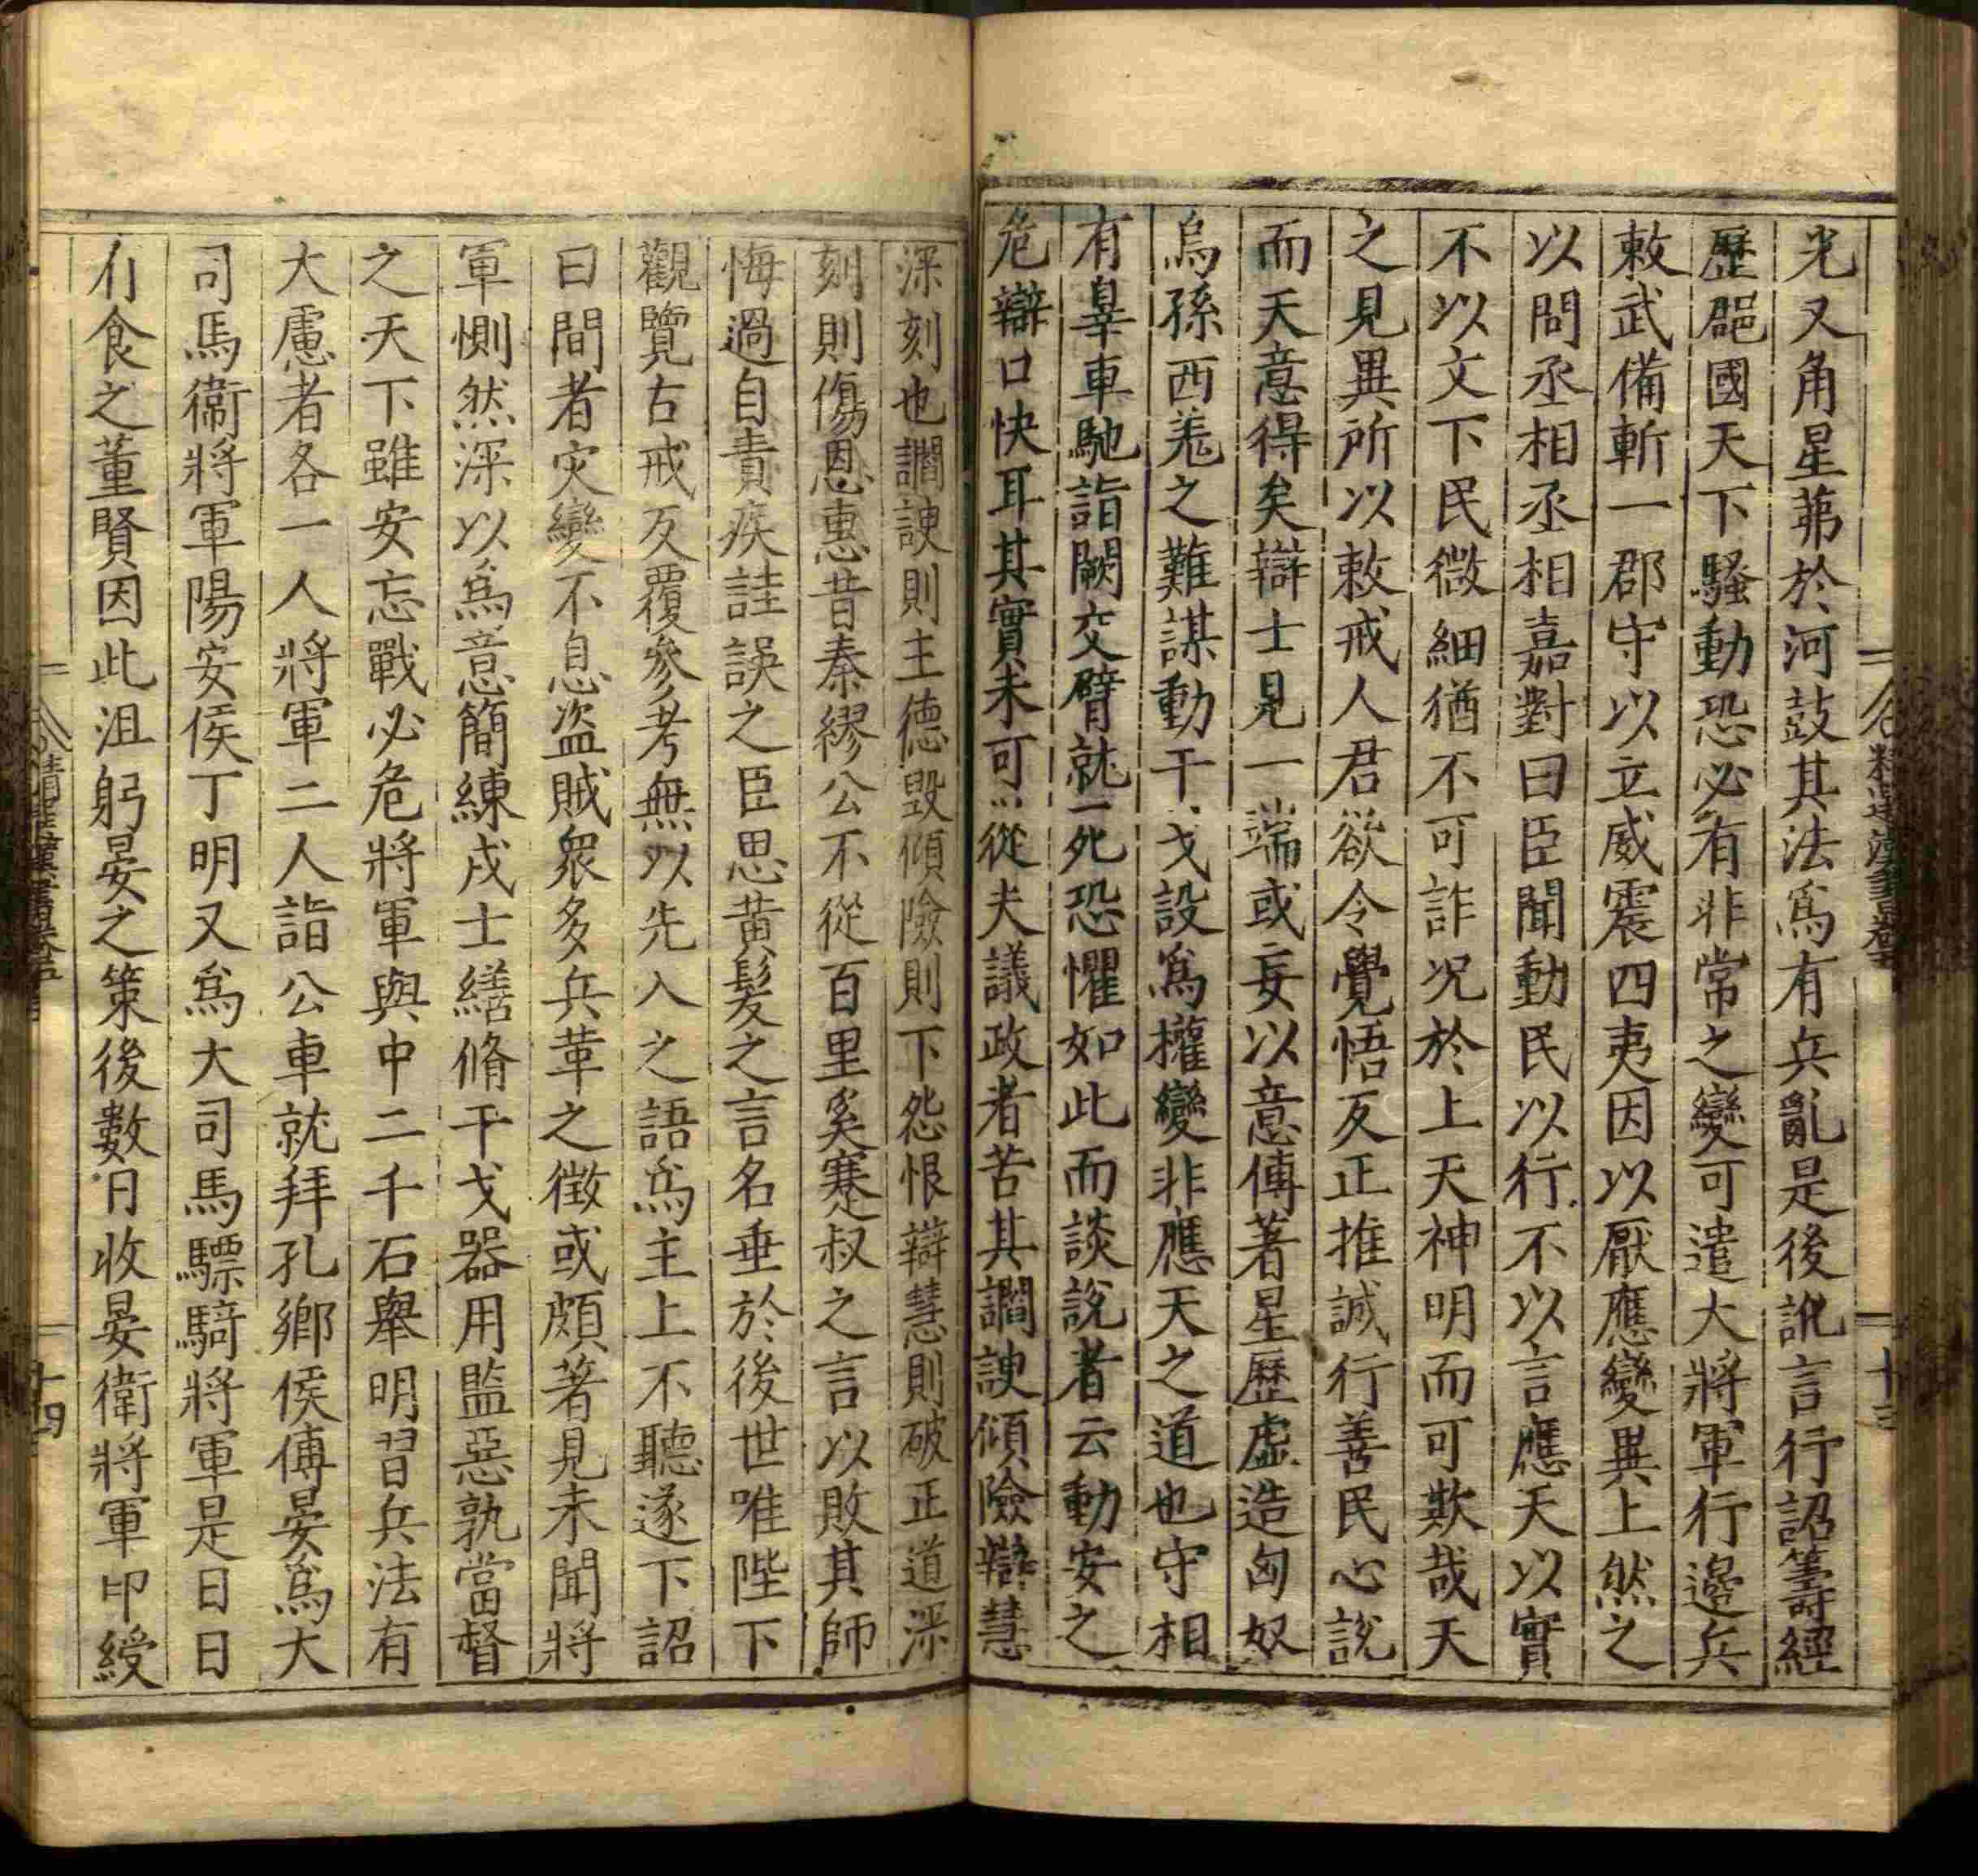 光又角星茀於河鼓其法爲有兵亂是後訛言行詔籌經
歷郡國天下騷動恐必有非常之變可遣大將軍行邊兵
敕武備斬一郡守以立威震四夷因以厭應變異上然之
以問丞相丞相嘉對曰臣聞動民以行不以言應天以實
不以文下民微細猶不可詐況於上天神明而可欺哉天
之見異所以敕戒人君欲令覺悟反正推誠行善民心說
而天意得矣辯士見一端或妄以意傅著星歷虛造匈奴
烏孫西羌之難謀動干戈設爲權變非應天之道也守相
有辠車馳詣闕交臂就死恐懼如此而談說者云動安之
危辯口快耳其實未可從夫議政者苦其讇諛傾險辯慧
深刻也讇諛則主德毀傾險則下怨恨辯慧則破正道深
刻則傷恩惠昔秦繆公不從百里奚蹇叔之言以敗其師
悔過自責疾詿誤之臣思黃髮之言名垂於後世唯陛下
觀覽古戒反覆參考無以先入之語爲主上不聽遂下詔
曰間者灾變不息盜賊衆多兵革之徵或頗著見未聞將
軍惻然深以爲意簡練戎士繕脩干戈器用盬惡孰當督
之天下雖安忘戰必危將軍與中二千石舉明習兵法有
大慮者各一人將軍二人詣公車就拜孔鄉侯傅晏爲大
司馬衞將軍陽安侯丁明又爲大司馬驃騎將軍是日日
有食之董賢因此沮躬晏之策後數日收晏衛將軍印綬
十三
十四